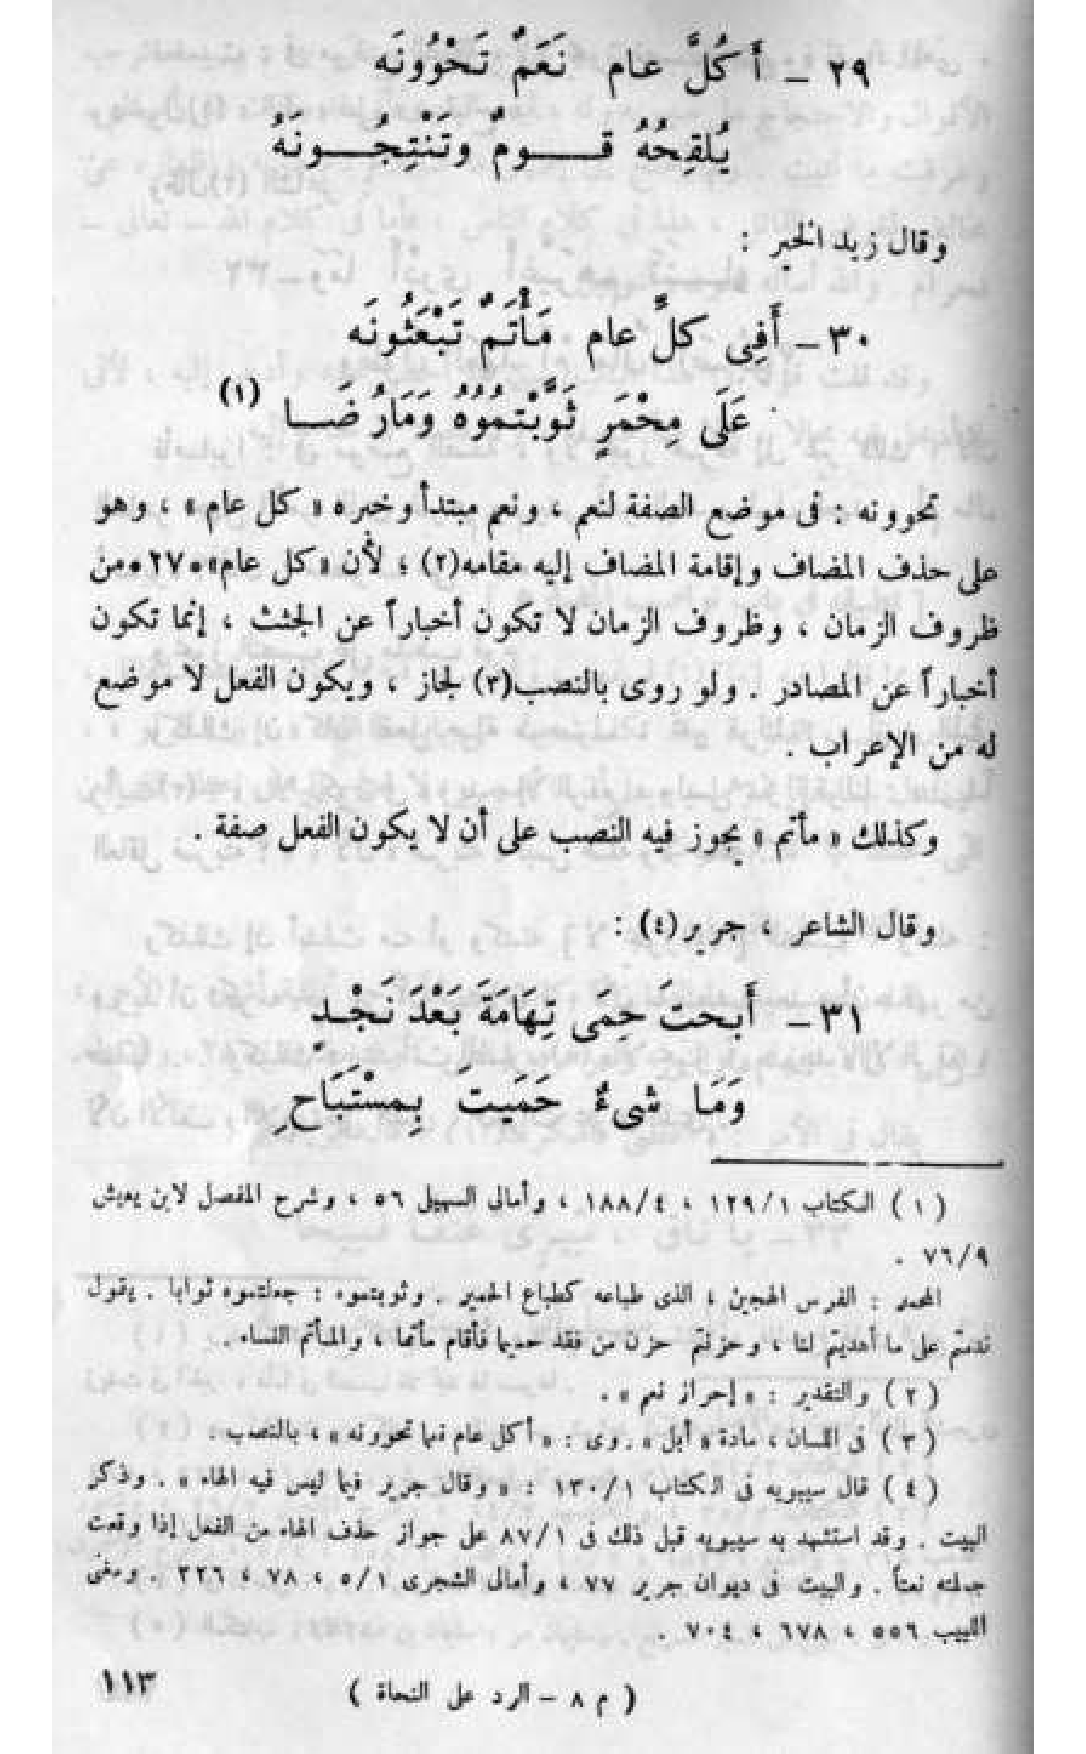 ٢٩ – أَكُلَّ عام نَعَمٌ تَحْوُونَه
يُلقِحُهُ قـــومٌ وتَنْتِجُـــونَهُ
وقال زيد الخير :
٣٠ – أَفِى كلَّ عام مَأْتَمٌ تَبْعَثُونَه
عَلَى مِحْمَرٍ ثَوَّبْتمُوُهُ وَمَارُ ضَــا (١)
تحوونه : فى موضع الصفة لنعم ، ونعم مبتدأ وخبره « كل عام » ، وهو
على حذف المضاف وإقامة المضاف إليه مقامه(٢) ؛ لأن « كل عام» «٢٧» من
ظروف الزمان ، وظروف الزمان لا تكون أخباراً عن الجثث ، إنما تكون
أخباراً عن المصادر . ولو روى بالنصب(٣) لجاز ، ويكون الفعل لا موضع
له من الإعراب .
وكذلك « مأتم » يجوز فيه النصب على أن لا يكون الفعل صفة .
وقال الشاعر ، جرير(٤) :
٣١ – أَبحتَ حِمَى تِهَامَةَ بَعْدَ نَجْـدٍ
وَمَا شىءٌ حَمَيتَ بِمسْتَبَاحِ
( ١ ) الكتاب ١٢٩/١ ، ١٨٨/٤ ، وأمالى السهيلى ٥٦ ، وشرح المفصل لابن يعيش
٧٦/٩ .
المحمر : الفرس الهجين ، الذى طباعه كطباع الحمير . وثوبتموه : جعلتموه ثوابا . يقول
ندمتم على ما أهديتم لنا ، وحزنتم حزن من فقد حميما فأقام مأتما ، والمأتم النساء .
( ٢ ) والتقدير : « إحراز نعم » .
( ٣ ) فى اللسان ، مادة « أبل » . روى : « أكل عام نعما تحوونه » ، بالنصب :
( ٤ ) قال سيبويه فى الكتاب ١٣٠/١ : « وقال جرير فيما ليس فيه الهاء » . وذكر
البيت . وقد استشهد به سيبويه قبل ذلك فى ٨٧/١ على جواز حذف الهاء من الفعل إذا وقعت
جملته نعتاً . والبيت فى ديوان جرير ٧٧ ، وأمالى الشجرى ٥/١ ، ٧٨ ، ٣٢٦ . ومغنى
اللبيب ٥٥٦ ، ٦٧٨ ، ٧٠٤ .
( م ٨ – الرد على النحاة )
١١٣